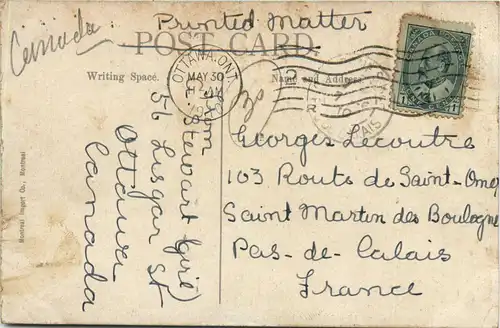 Canada
Printed Matter
POST CARD
Writing Space.
Name and Address
OTTAWA, ONT.
MAY 30
CANADA POSTAGE
1 1
from
Stewart (girl)
56 Lisgar St
Ottawa
Canada
Georges Lecoutre
103 Route de Saint-Omer
Saint Martin des Boulogne
Pas-de-Calais
France
Montreal Import Co., Montreal